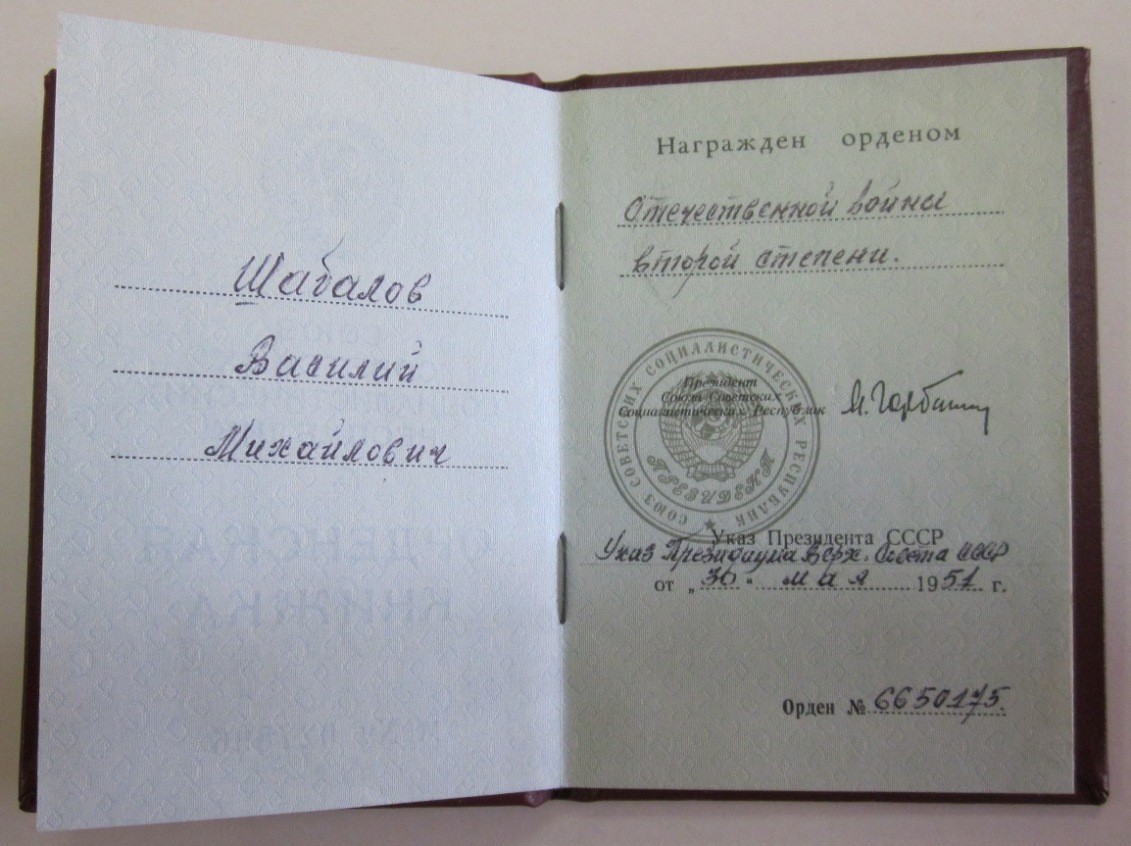 Шабалов
Василий
Михайлович
Награжден орденом
Отечественной войны
второй степени.
СОЮЗ СОВЕТСКИХ СОЦИАЛИСТИЧЕСКИХ РЕСПУБЛИК
ПРЕЗИДЕНТ
Президент
Союза Советских
Социалистических Республик
М. Горбачев
Указ Президента СССР
Указ Президиума Верх. Совета СССР
от „30“ мая 1951 г.
Орден № 6650175.